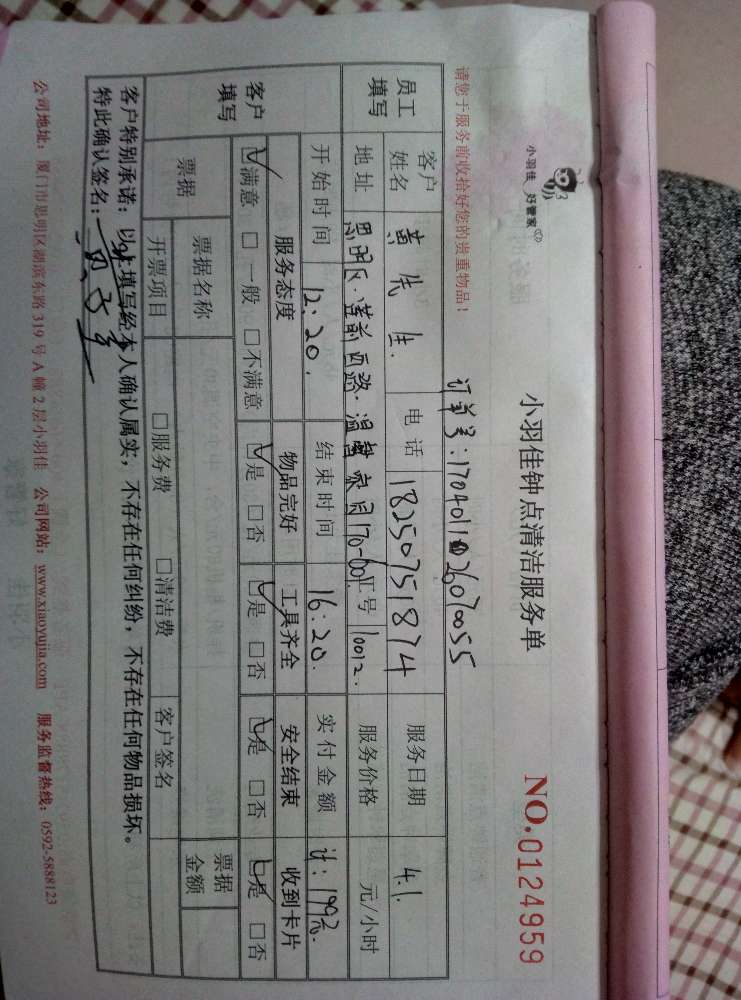 小羽佳 好管家
小羽佳钟点清洁服务单
NO.0124959
请您于服务前收拾好您的贵重物品!
员工填写
客户姓名 黄先生. 电话 18250751874 服务日期 4.1.
地址 思明区·莲前西路·温馨家园170-601 工号 10012. 服务价格 元/小时
开始时间 12:20. 结束时间 16:20. 实付金额 计:199元.
客户填写
服务态度 物品完好 工具齐全 安全结束 收到卡片
☑满意 □一般 □不满意 ☑是 □否 ☑是 □否 ☑是 □否 ☑是 □否
票据 票据名称 票据金额
开票项目 □服务费 □清洁费 客户签名
客户特别承诺:以上填写经本人确认属实,不存在任何纠纷,不存在任何物品损坏。
特此确认签名:
公司地址:厦门市思明区湖滨东路319号A幢2层小羽佳 公司网站:www.xiaoyujia.com 服务监督热线:0592-5888123